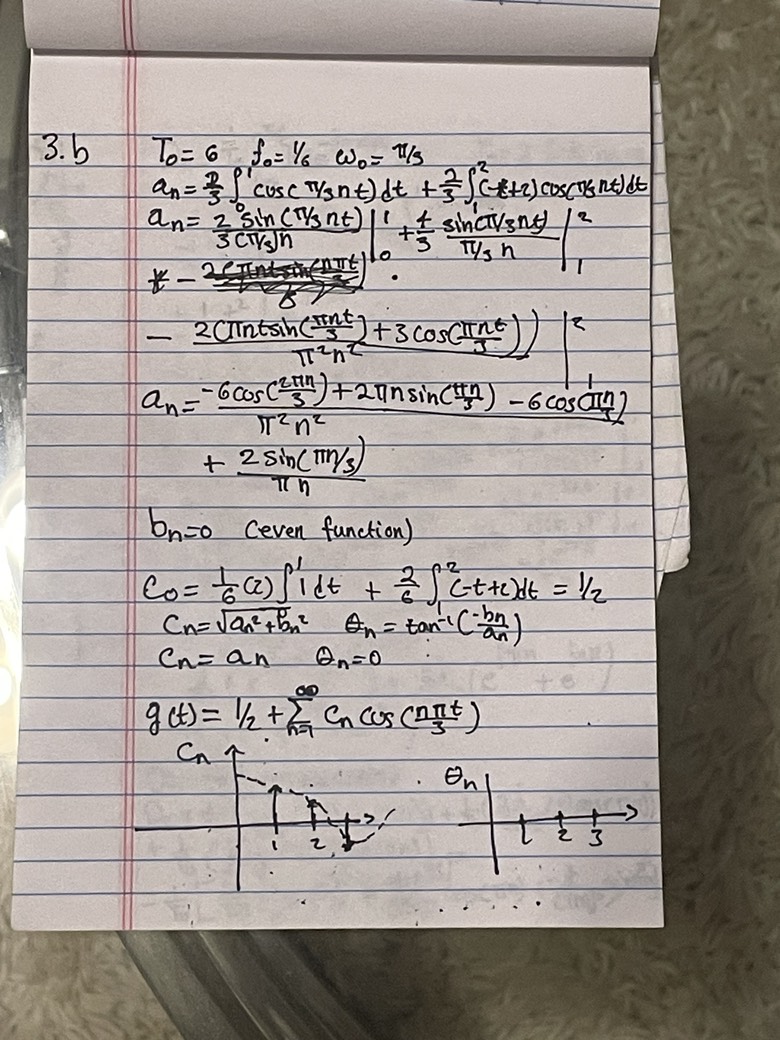 3.b T₀ = 6 f₀ = 1/6 ω₀ = π/3
aₙ = 2/3 ∫₀¹ cos(π/3 nt) dt + 2/3 ∫₁² (-t+2) cos(π/3 nt) dt
aₙ = 2 sin(π/3 nt) / 3(π/3)n |₀¹ + 4/3 sin(π/3 nt) / π/3 n |₁²
− 2(πnt sin(πnt/3) + 3 cos(πnt/3)) / π²n² |₁²
aₙ = −6cos(2πn/3) + 2πn sin(πn/3) − 6cos(πn/3) / π²n²
+ 2 sin(πn/3) / πn
bₙ = 0 (even function)
C₀ = 1/6 (2) ∫₀¹ 1 dt + 2/6 ∫₁² (-t+2) dt = 1/2
Cₙ = √aₙ² + bₙ² θₙ = tan⁻¹(-bₙ/aₙ)
Cₙ = aₙ θₙ = 0
g(t) = 1/2 + ∑ₙ₌₁^∞ Cₙ cos(nπt/3)
Cₙ θₙ
1 2 1 2 3